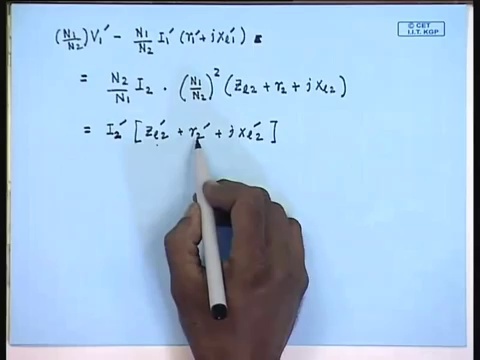 © CET
I.I.T. KGP
(N₁/N₂)V₁′ − N₁/N₂ I₁′ (r₁′ + j xₗ₁′)
= N₂/N₁ I₂ · (N₁/N₂)² (Zₗ₂ + r₂ + j xₗ₂)
= I₂′ [Zₗ₂′ + r₂′ + j xₗ₂′]